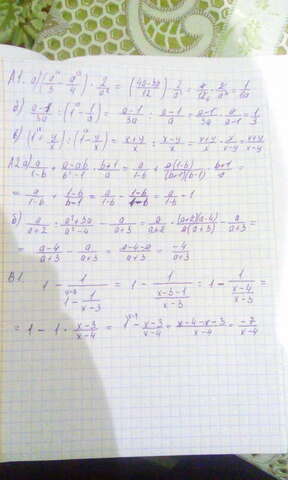 A1. а) (a/3 - a/4) · 2/a² = (4a-3a/12) · 2/a² = a/12 · 2/a² = 1/6a
б) a-1/3a : (1 - 1/a) = a-1/3a : a-1/a = a-1/3a · a/a-1 = 1/3
в) (1 + y/x) : (1 - y/x) = x+y/x : x-y/x = x+y/x · x/x-y = x+y/x-y
A2 а) a/1-b + a-ab/b²-1 · b+1/a = a/1-b + a(1-b)/(b+1)(b-1) · b+1/a =
= a/1-b + 1-b/b-1 = a/1-b - 1-b/1-b = a/1-b - 1
б) a/a+2 · a²+3a/a²-4 - a/a+3 = a/a+2 · (a+2)(a-4)/a(a+3) - a/a+3 =
= a-4/a+3 - a/a+3 = a-4-a/a+3 = -4/a+3
В1. 1 - 1/1 - 1/x-3 = 1 - 1/x-3-1/x-3 = 1 - 1/x-4/x-3 =
= 1 - 1 · x-3/x-4 = 1 - x-3/x-4 = x-4-x-3/x-4 = -7/x-4